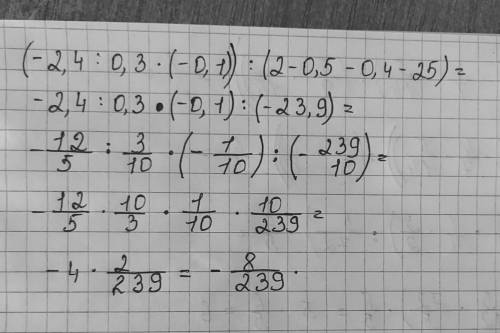 (-2,4 : 0,3 · (-0,1)) : (2-0,5 -0,4-25) =
-2,4 : 0,3 · (-0,1) : (-23,9) =
-12/5 : 3/10 · (-1/10) : (-239/10) =
-12/5 · 10/3 · 1/10 · 10/239 =
-4 · 2/239 = -8/239 .